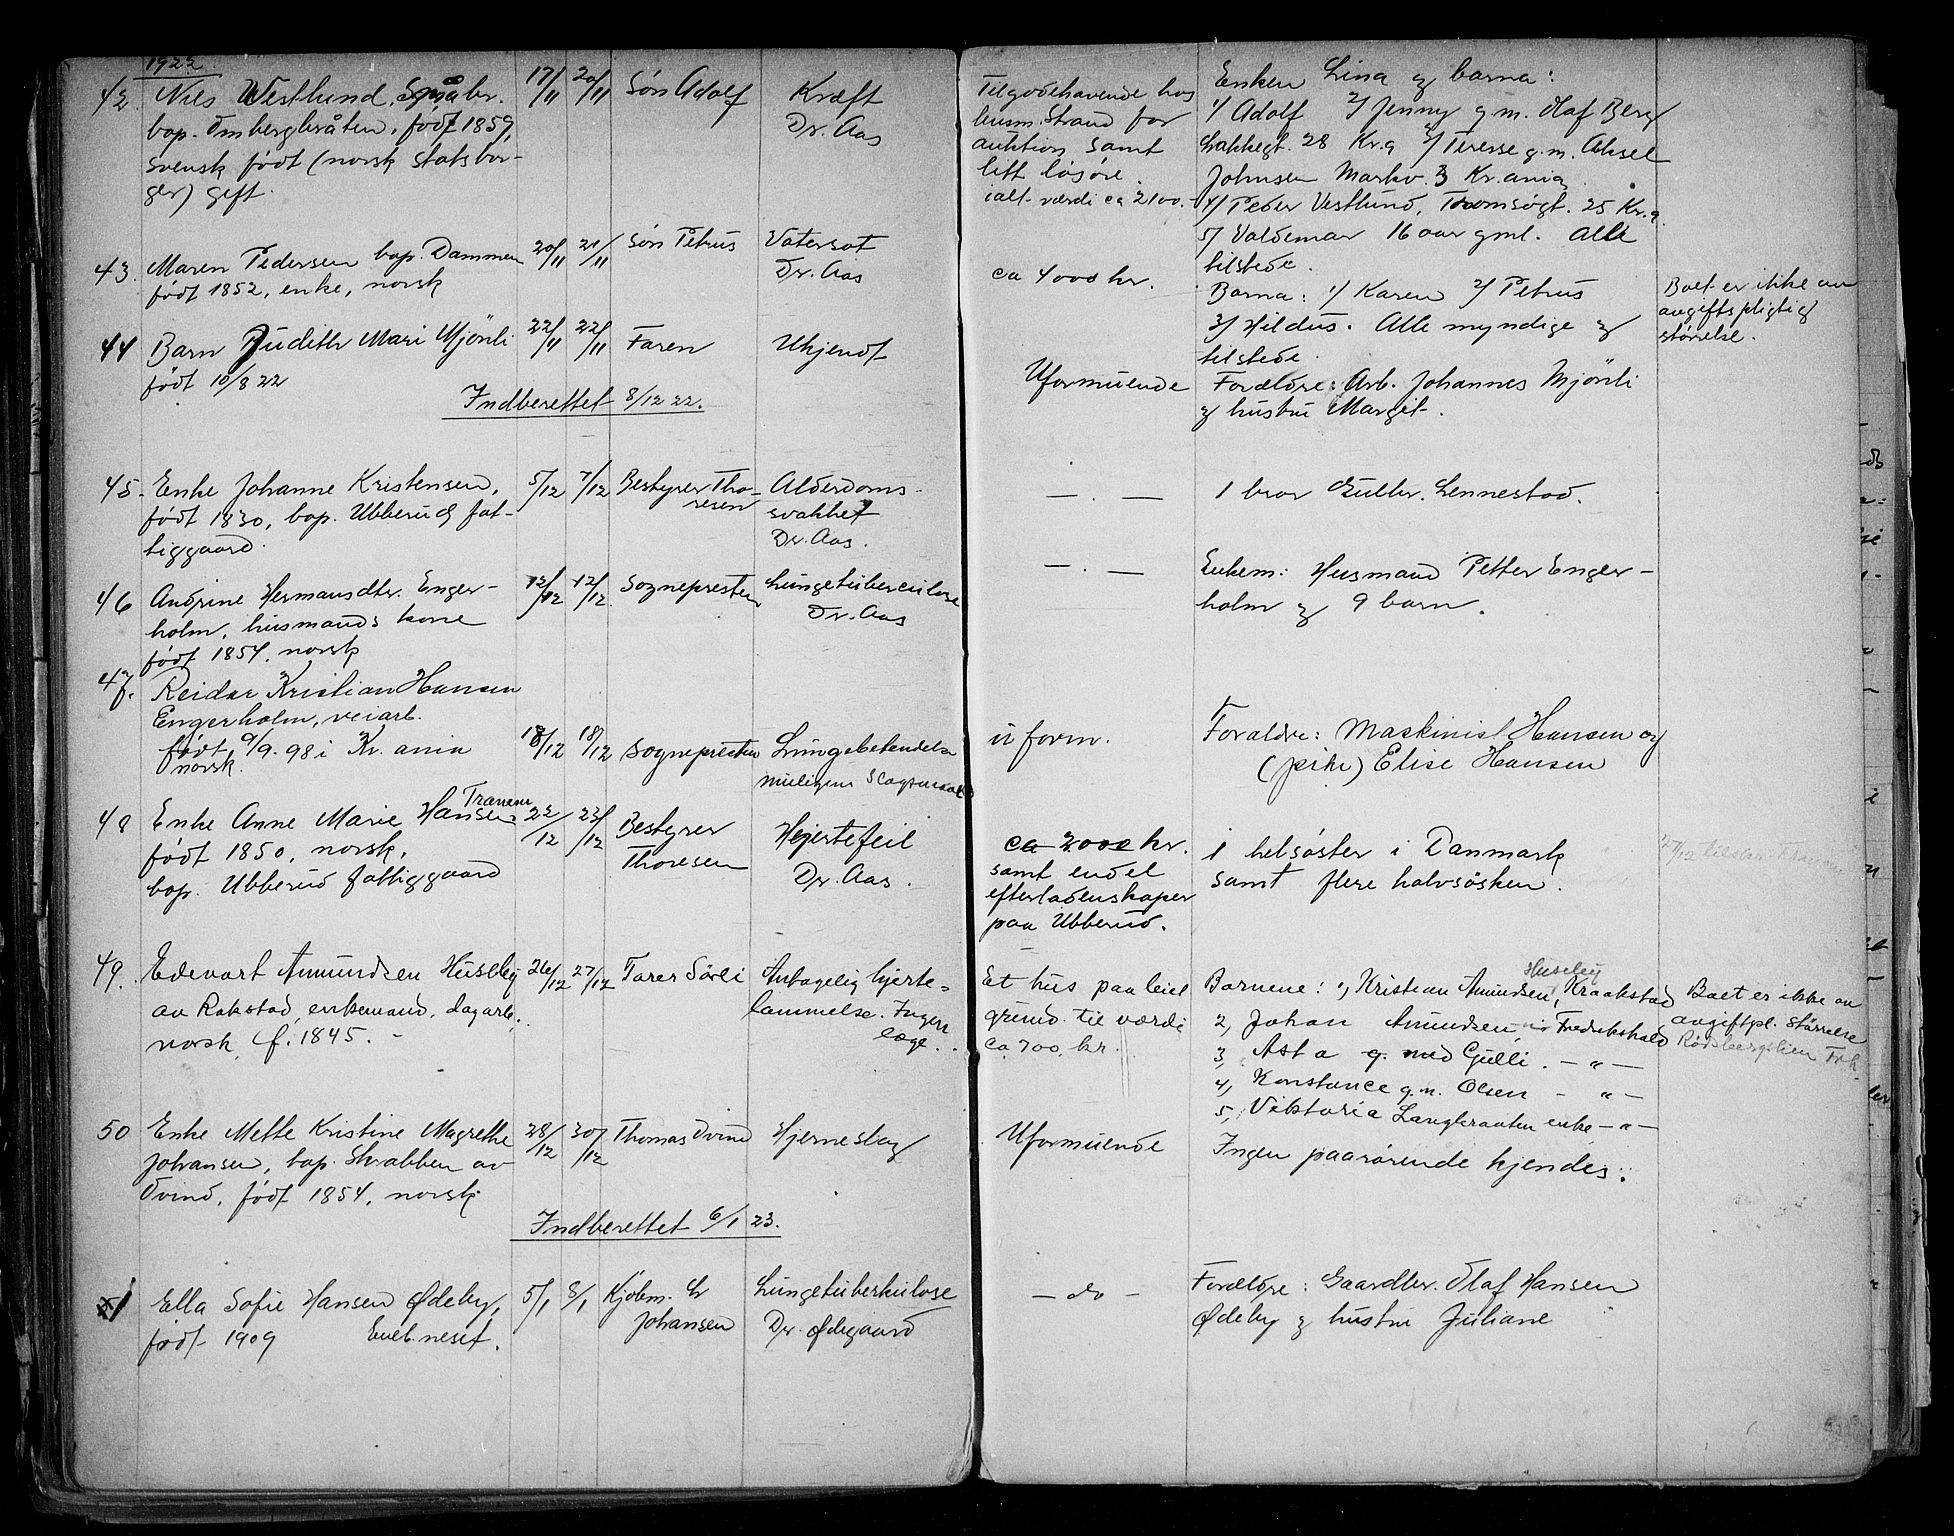 1922.
42. Nils Westlund, Småbr. 17/11 20/11 Søn Adolf Kræft
bop. Ombergbråten, født 1859, Dr. Aas
svensk født (norsk statsbor-
ger) gift.
Tilgodehavende hos
husm. Strand for
auktion samt
litt løsøre.
ialt værdi ca 2100.-
Enken Lina og barna:
1/ Adolf 2/ Jenny g. m. Olaf Berg
Lakkegt. 28 Kr.a 3/ Terese g. m. Aksel
Johnsen Markv. 3 Kr.ania
4/ Peder Vestlund, Tromsøgt. 25 Kr.a
5/ Valdemar 16 aar gml. Alle
tilstede.
43. Maren Pedersen bop. Dammen 20/11 21/11 Søn Petrus Vatersot
født 1852, enke, norsk Dr. Aas
ca 4000 kr.
Barna: 1/ Karen 2/ Petrus
3/ Hildus. Alle myndige og
tilstede.
Boet er ikke av
avgiftspligtig
størrelse.
44 Barn Judith Mari Mjönli 22/11 22/11 Faren Ukjendt
født 10/8 22
Uformuende
Forældre: Arb. Johannes Mjönli
og hustru Margit.
Indberettet 8/12 22.
45. Enke Johanne Kristensen, 5/12 7/12 Bestyrer Tho- Alderdoms-
født 1830, bop. Ubberud fat- resen svakhet
tiggaard. Dr. Aas.
— . — 1 bror Gulbr. Lennestad.
46 Andrine Hermansdtr. Enger- 12/12 12/12. Sognepresten Lungetuberculose
holm, husmands kone Dr. Aas
født 1854, norsk
— . — Enkem: Husmand Petter Enger-
holm og 9 barn.
47. Reidar Kristian Hansen
Engerholm, veiarb.
født 9/9. 98 i Kr. ania 18/12 18/12 Sognepresten Lungebetendelse
norsk. muligens
uform.
Foraldre: Maskinist Hansen og
(pike) Elise Hansen
48 Enke Anne Marie Hansen 22/12 23/12 Bestyrer Hjertefeil
født 1850, norsk, Thoresen Dr. Aas.
bop. Ubberud fattiggaard
ca 2000 kr.
samt endel
efterladenskaper
paa Ubberud.
1 helsøster i Danmark
samt flere halvsøsken.
49. Edevart Amundsen Huseby 26/12 27/12 Tarer Sörli Antagelig hjerte-
av Rakstad, enkemand, dagarb., lammelse. Ingen
norsk, f. 1845. - læge.
Et hus paa leiet
grund til værdi
ca 700 kr.
Huseby
Barnene: 1, Kristian Amundsen, Kraakstad
2, Johan Amundsen, Fredrikshald
3, Asta g. med Gulli. - " -
4, Konstance g. m. Olsen - " -
5, Viktoria Langbraaten enke - " -
Boet er ikke av
avgiftpl. størrelse
50 Enke Mette Kristine Magrethe 28/12 30/12 Thomas Ovind Hjerneslag
Johansen, bop. Skrabben av
Ovind, født 1854, norsk
Uformuende Ingen paarørende kjendes.
Indberettet 6/1 23.
1 Ella Sofie Hansen Ødeby, 5/1 8/1 Kjøbm. Johansen Lungetuberkulose
født 1909 Eneb.neset. Dr. Ødegaard
- do - Forældre: Gaardbr. Olaf Hansen
Ødeby og hustru Juliane